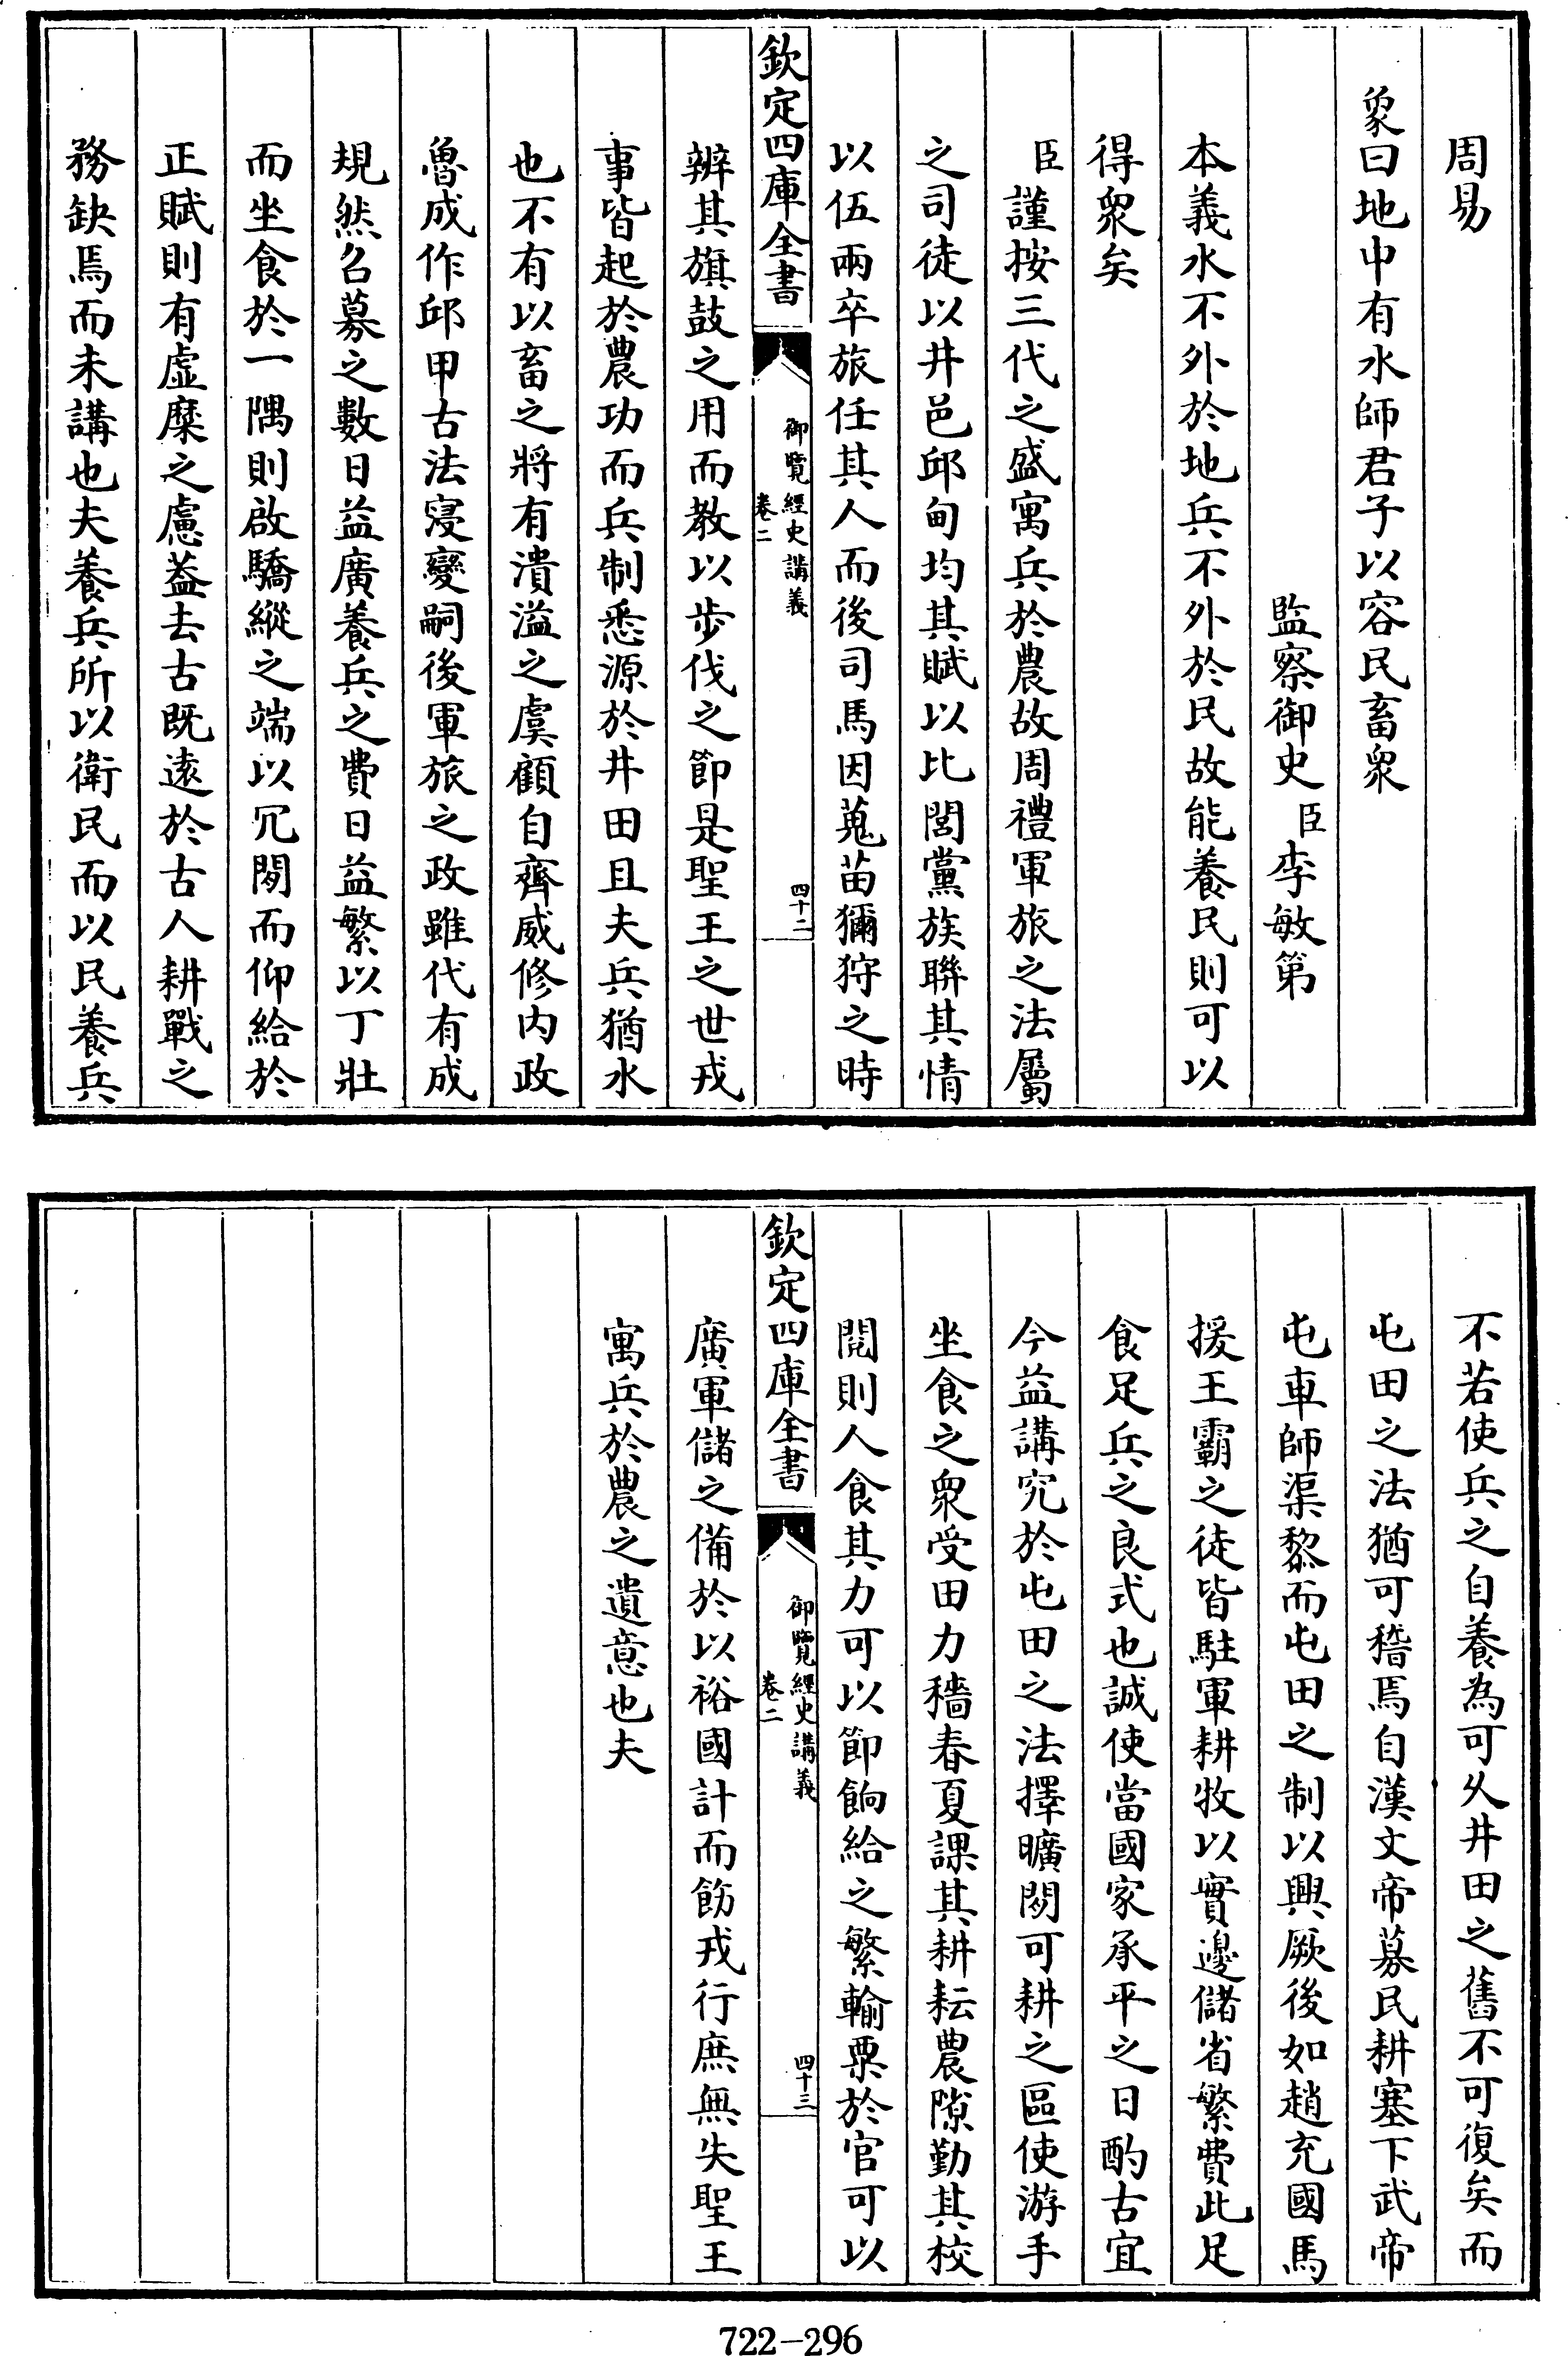 周易
象曰地中有水師君子以容民畜衆
監察御史臣李敏第
本義水不外於地兵不外於民故能養民則可以
得衆矣
臣謹按三代之盛寓兵於農故周禮軍旅之法屬
之司徒以井邑邱甸均其賦以比閭黨族聯其情
以伍兩卒旅任其人而後司馬因蒐苗獮狩之時
欽定四庫全書
御覽經史講義
卷二
四十二
辨其旗鼓之用而教以步伐之節是聖王之世戎
事皆起於農功而兵制悉源於井田且夫兵猶水
也不有以畜之將有潰溢之虞顧自齊威修內政
魯成作邱甲古法寖變嗣後軍旅之政雖代有成
規然召募之數日益廣養兵之費日益繁以丁壯
而坐食於一隅則啟驕縱之端以冗閒而仰給於
正賦則有虛糜之慮葢去古既逺於古人耕戰之
務缺焉而未講也夫養兵所以衛民而以民養兵
不若使兵之自養為可久井田之舊不可復矣而
屯田之法猶可稽焉自漢文帝募民耕塞下武帝
屯車師渠黎而屯田之制以興厥後如趙充國馬
援王霸之徒皆駐軍耕牧以實邊儲省繁費此足
食足兵之良式也誠使當國家承平之日酌古宜
今益講究於屯田之法擇曠閒可耕之區使游手
坐食之衆受田力穡春夏課其耕耘農隙勤其校
閱則人食其力可以節餉給之繁輸粟於官可以
欽定四庫全書
御覽經史講義
卷二
四十三
廣軍儲之備於以裕國計而飭戎行庶無失聖王
寓兵於農之遺意也夫
722-296